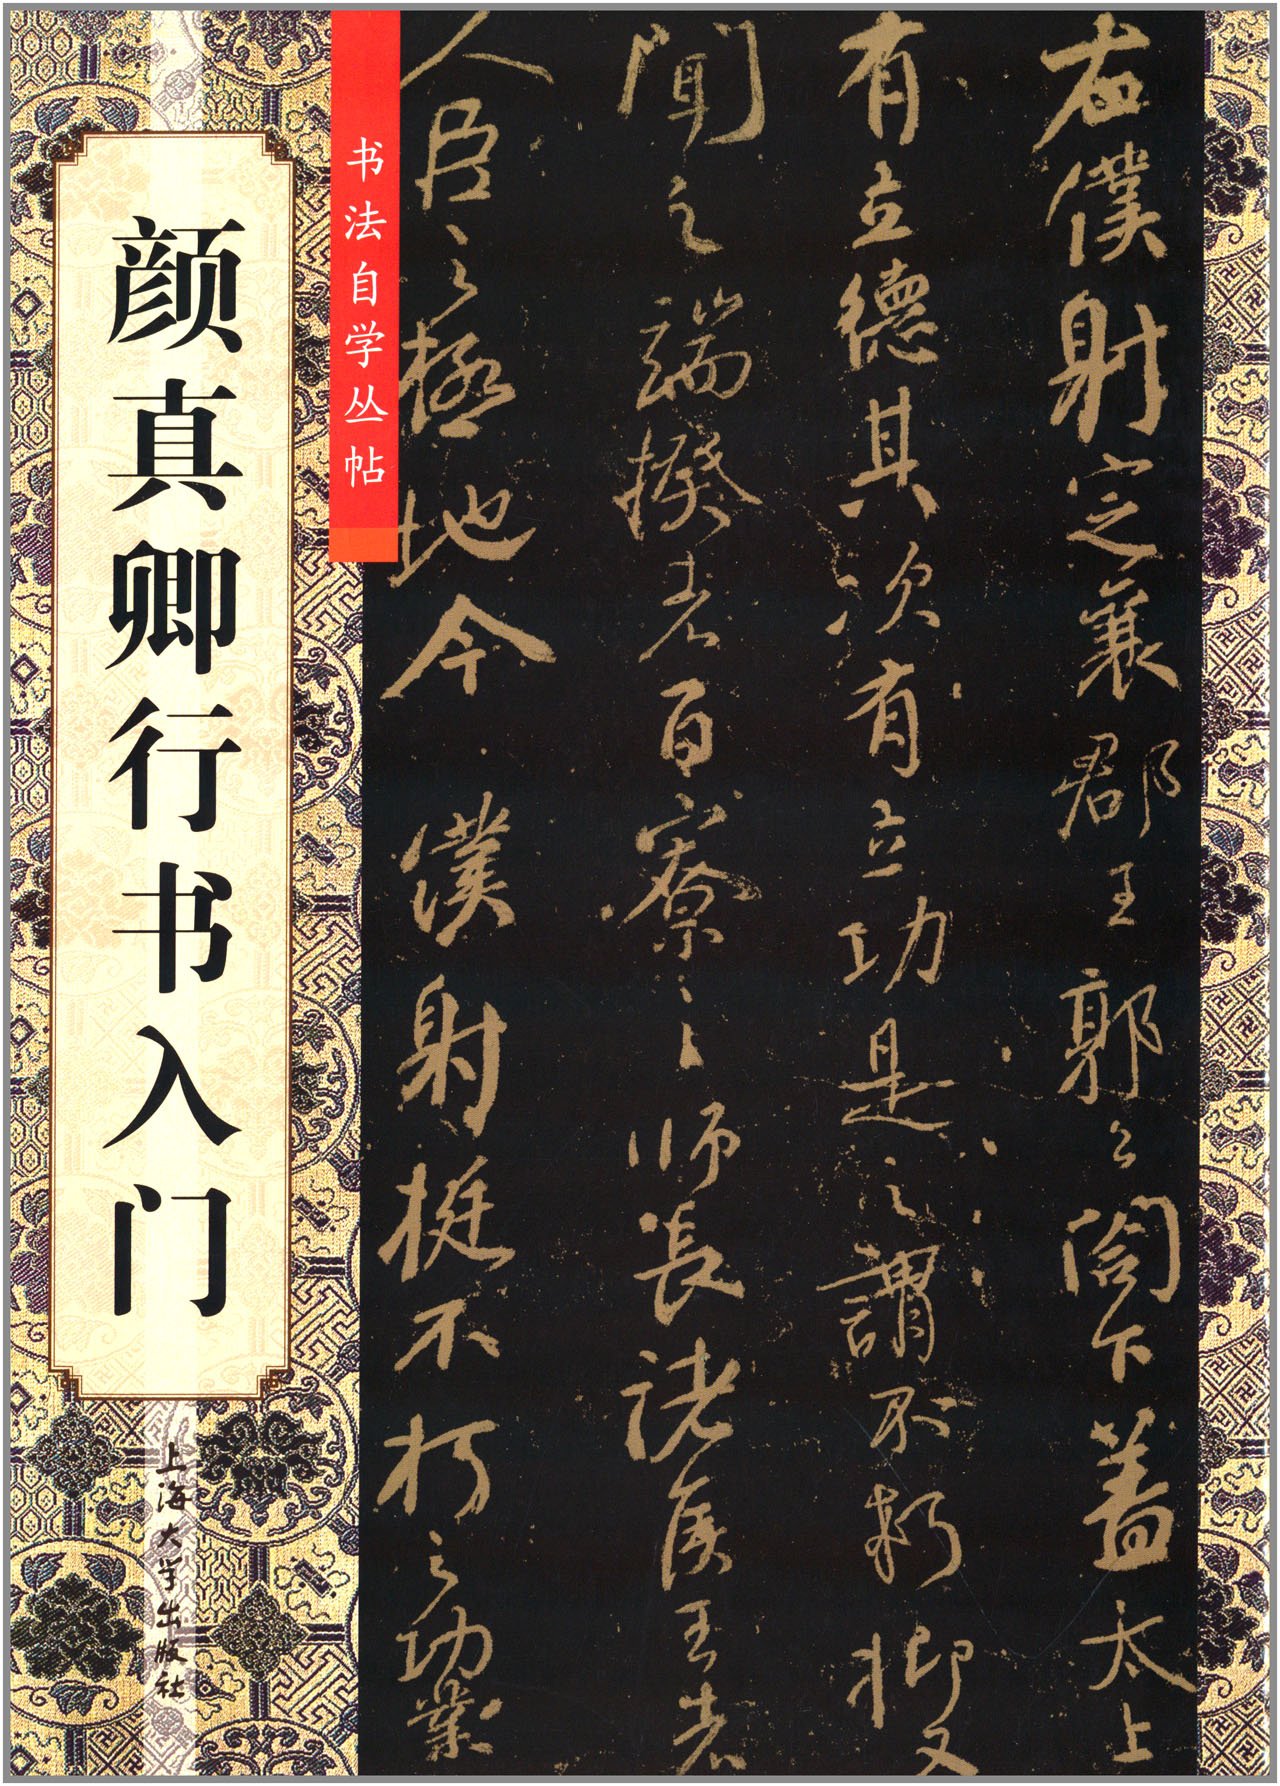 颜真卿行书入门
书法自学丛帖
右僕射定襄郡王郭公閤下蓋太上
有立德其次有立功是之謂不朽抑又
聞之端揆者百寮之師長諸侯王者
人臣之極地今僕射挺不朽之功業
上海大学出版社